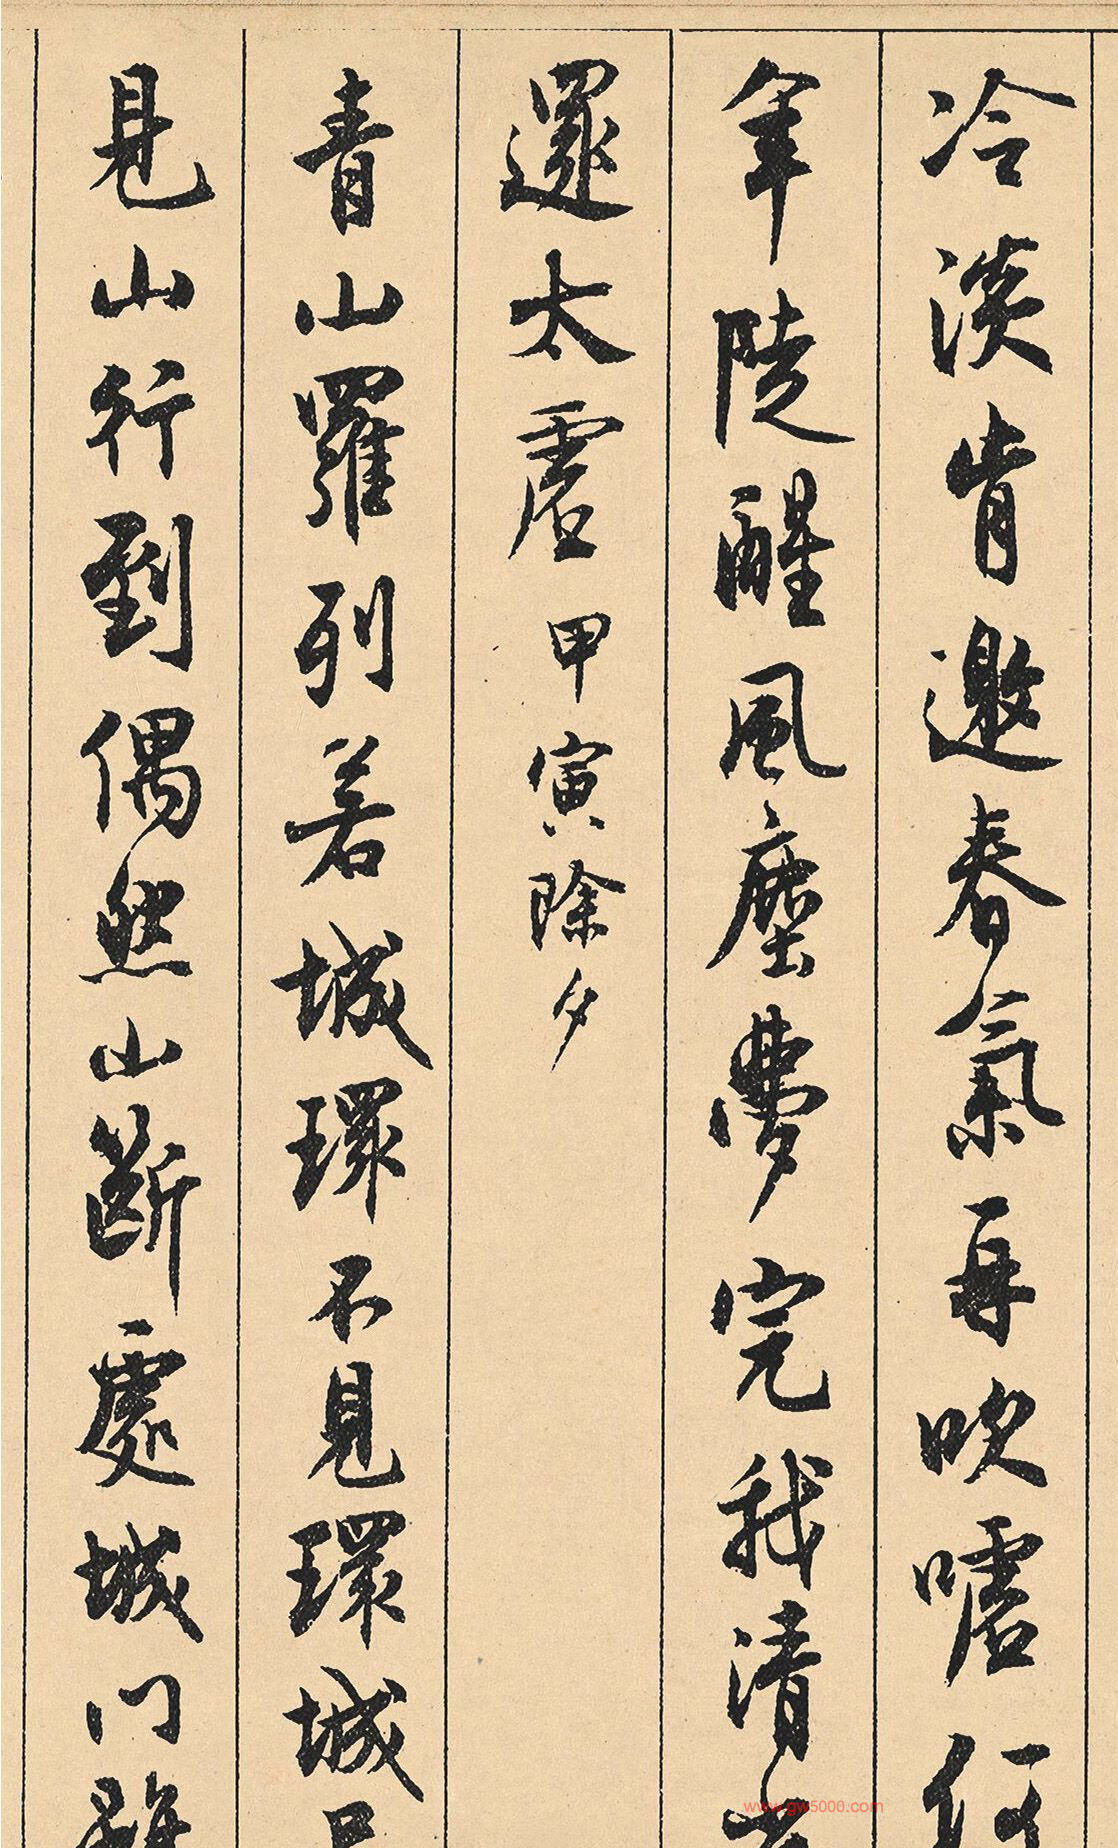 冷淡肯邀春氣再吹噓
年陡醒風塵夢完我清
還太虛甲寅除夕
青山羅列若城環不見環城
見山行到偶然山斷處城門
www.gw5000.com